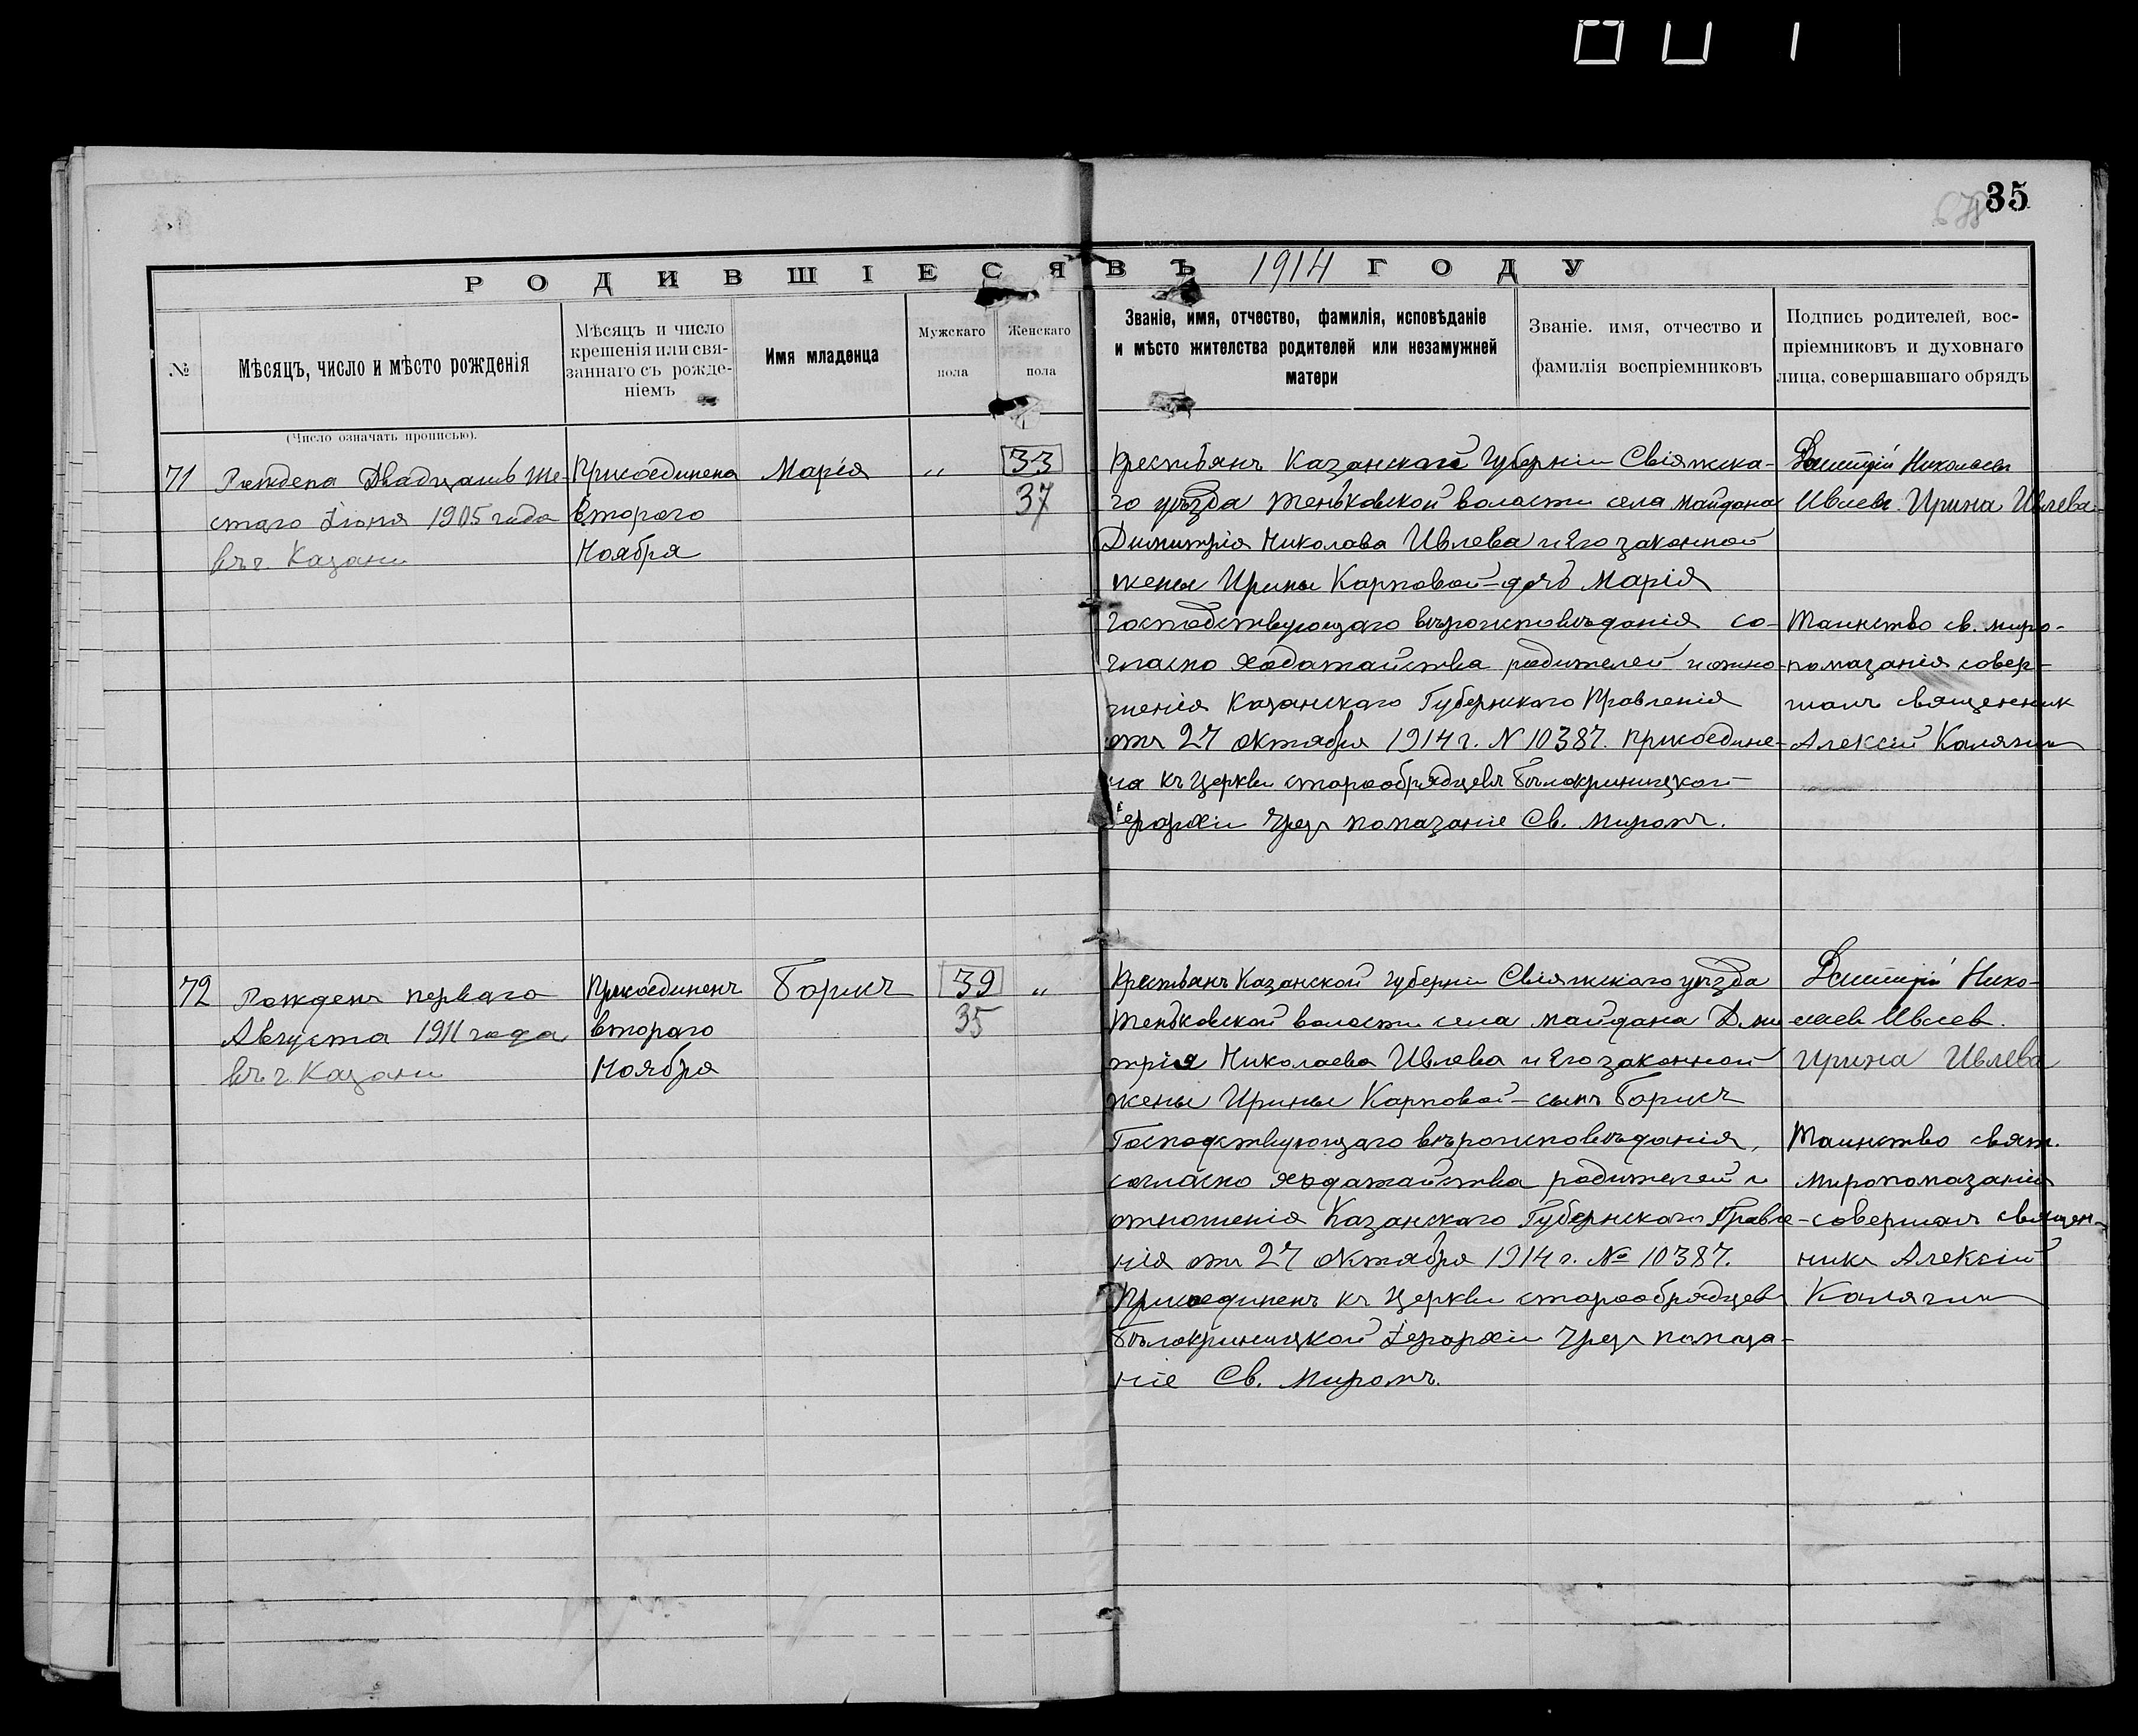 35
РОДИВШІЕСЯ ВЪ 1914 ГОДУ
№
Мѣсяцъ, число и мѣсто рожденія
Мѣсяцъ и число
крещенія или свя-
заннаго съ рожде-
ніемъ
Имя младенца
Мужскаго
пола
Женскаго
пола
Званіе, имя, отчество, фамилія, исповѣданіе
и мѣсто жителства родителей или незамужней
матери
Званіе. имя, отчество и
фамилія воспріемниковъ
Подпись родителей, вос-
пріемниковъ и духовнаго
лица, совершавшаго обрядъ
(Число означать прописью).
71
Рождена Двадцать ше-
стаго Іюня 1905 года
въ г. Казани
Присоединена
второго
Ноября
Марія
„
33
37
Крестьянъ Казанской Губерніи Свіяжска-
го уѣзда Теньковской волости села Майдана
Димитрія Николава Ивлева и Его законной
жены Ирины Карповой - дочь Марія
Господствующаго вѣроисповѣданія со-
гласно ходатайства родителей и отно-
шенія Казанскаго Губернскаго Правленія
отъ 27 октября 1914 г. N 10387. присоедине-
на къ Церкви старообрядцевъ Бѣлокриницкой
Іерархіи чрез помазаніе Св. Миромъ.
Дмитрій Николаевъ
Ивлевъ. Ирина Ивлева
Таинство св. миро-
помазанія совер-
шалъ священник
Алексій Калягин
72
Рожденъ перваго
Августа 1911 года
въ г. Казани
Присоединенъ
второго
Ноября
Борисъ
39
35
„
Крестьянъ Казанской губерніи Свіяжскаго уѣзда
Теньковской волости села Майдана Дми
трія Николаева Ивлева и Его законной
жены Ирины Карповой - сынъ Борисъ
Господствующаго вѣроисповѣданія,
согласно ходатайства родителей и
отношенія Казанскаго Губернскаго Правле-
нія отъ 27 октября 1914 г. № 10387.
Присоединенъ къ Церкви старообрядцев
Бѣлокриницкой Іерархіи чрез помаза-
ніе Св. Миромъ.
Дмитрій Нико-
лаев Ивлев.
Ирина Ивлева
Таинство свят.
Миропомазанія
совершал священ-
никъ Алексій
Калягин